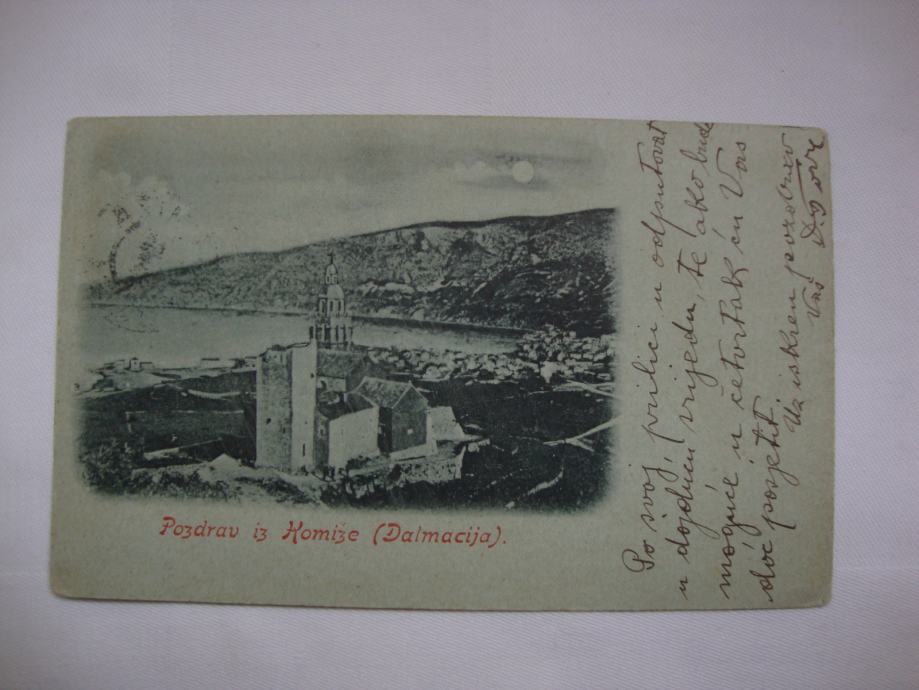 Pozdrav iz Komiže (Dalmacija).
Po svoj prilici u odputovat
u dojduću srijedu, te ako bude
moguće u četvrtak ću Vas
doć posjetit
Uz iskren pozdrav
Vaš